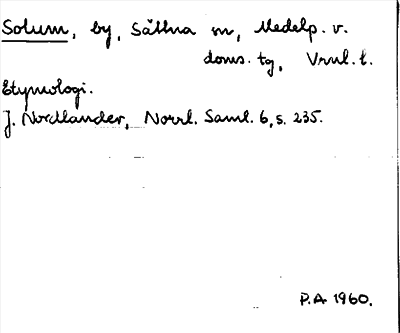 Solum, by, Sättna sn, Medelp. v.
doms. tg, Vrnl. l.
Etymologi.
J. Nordlander, Norrl. Saml. 6, s. 235.
P.A 1960.